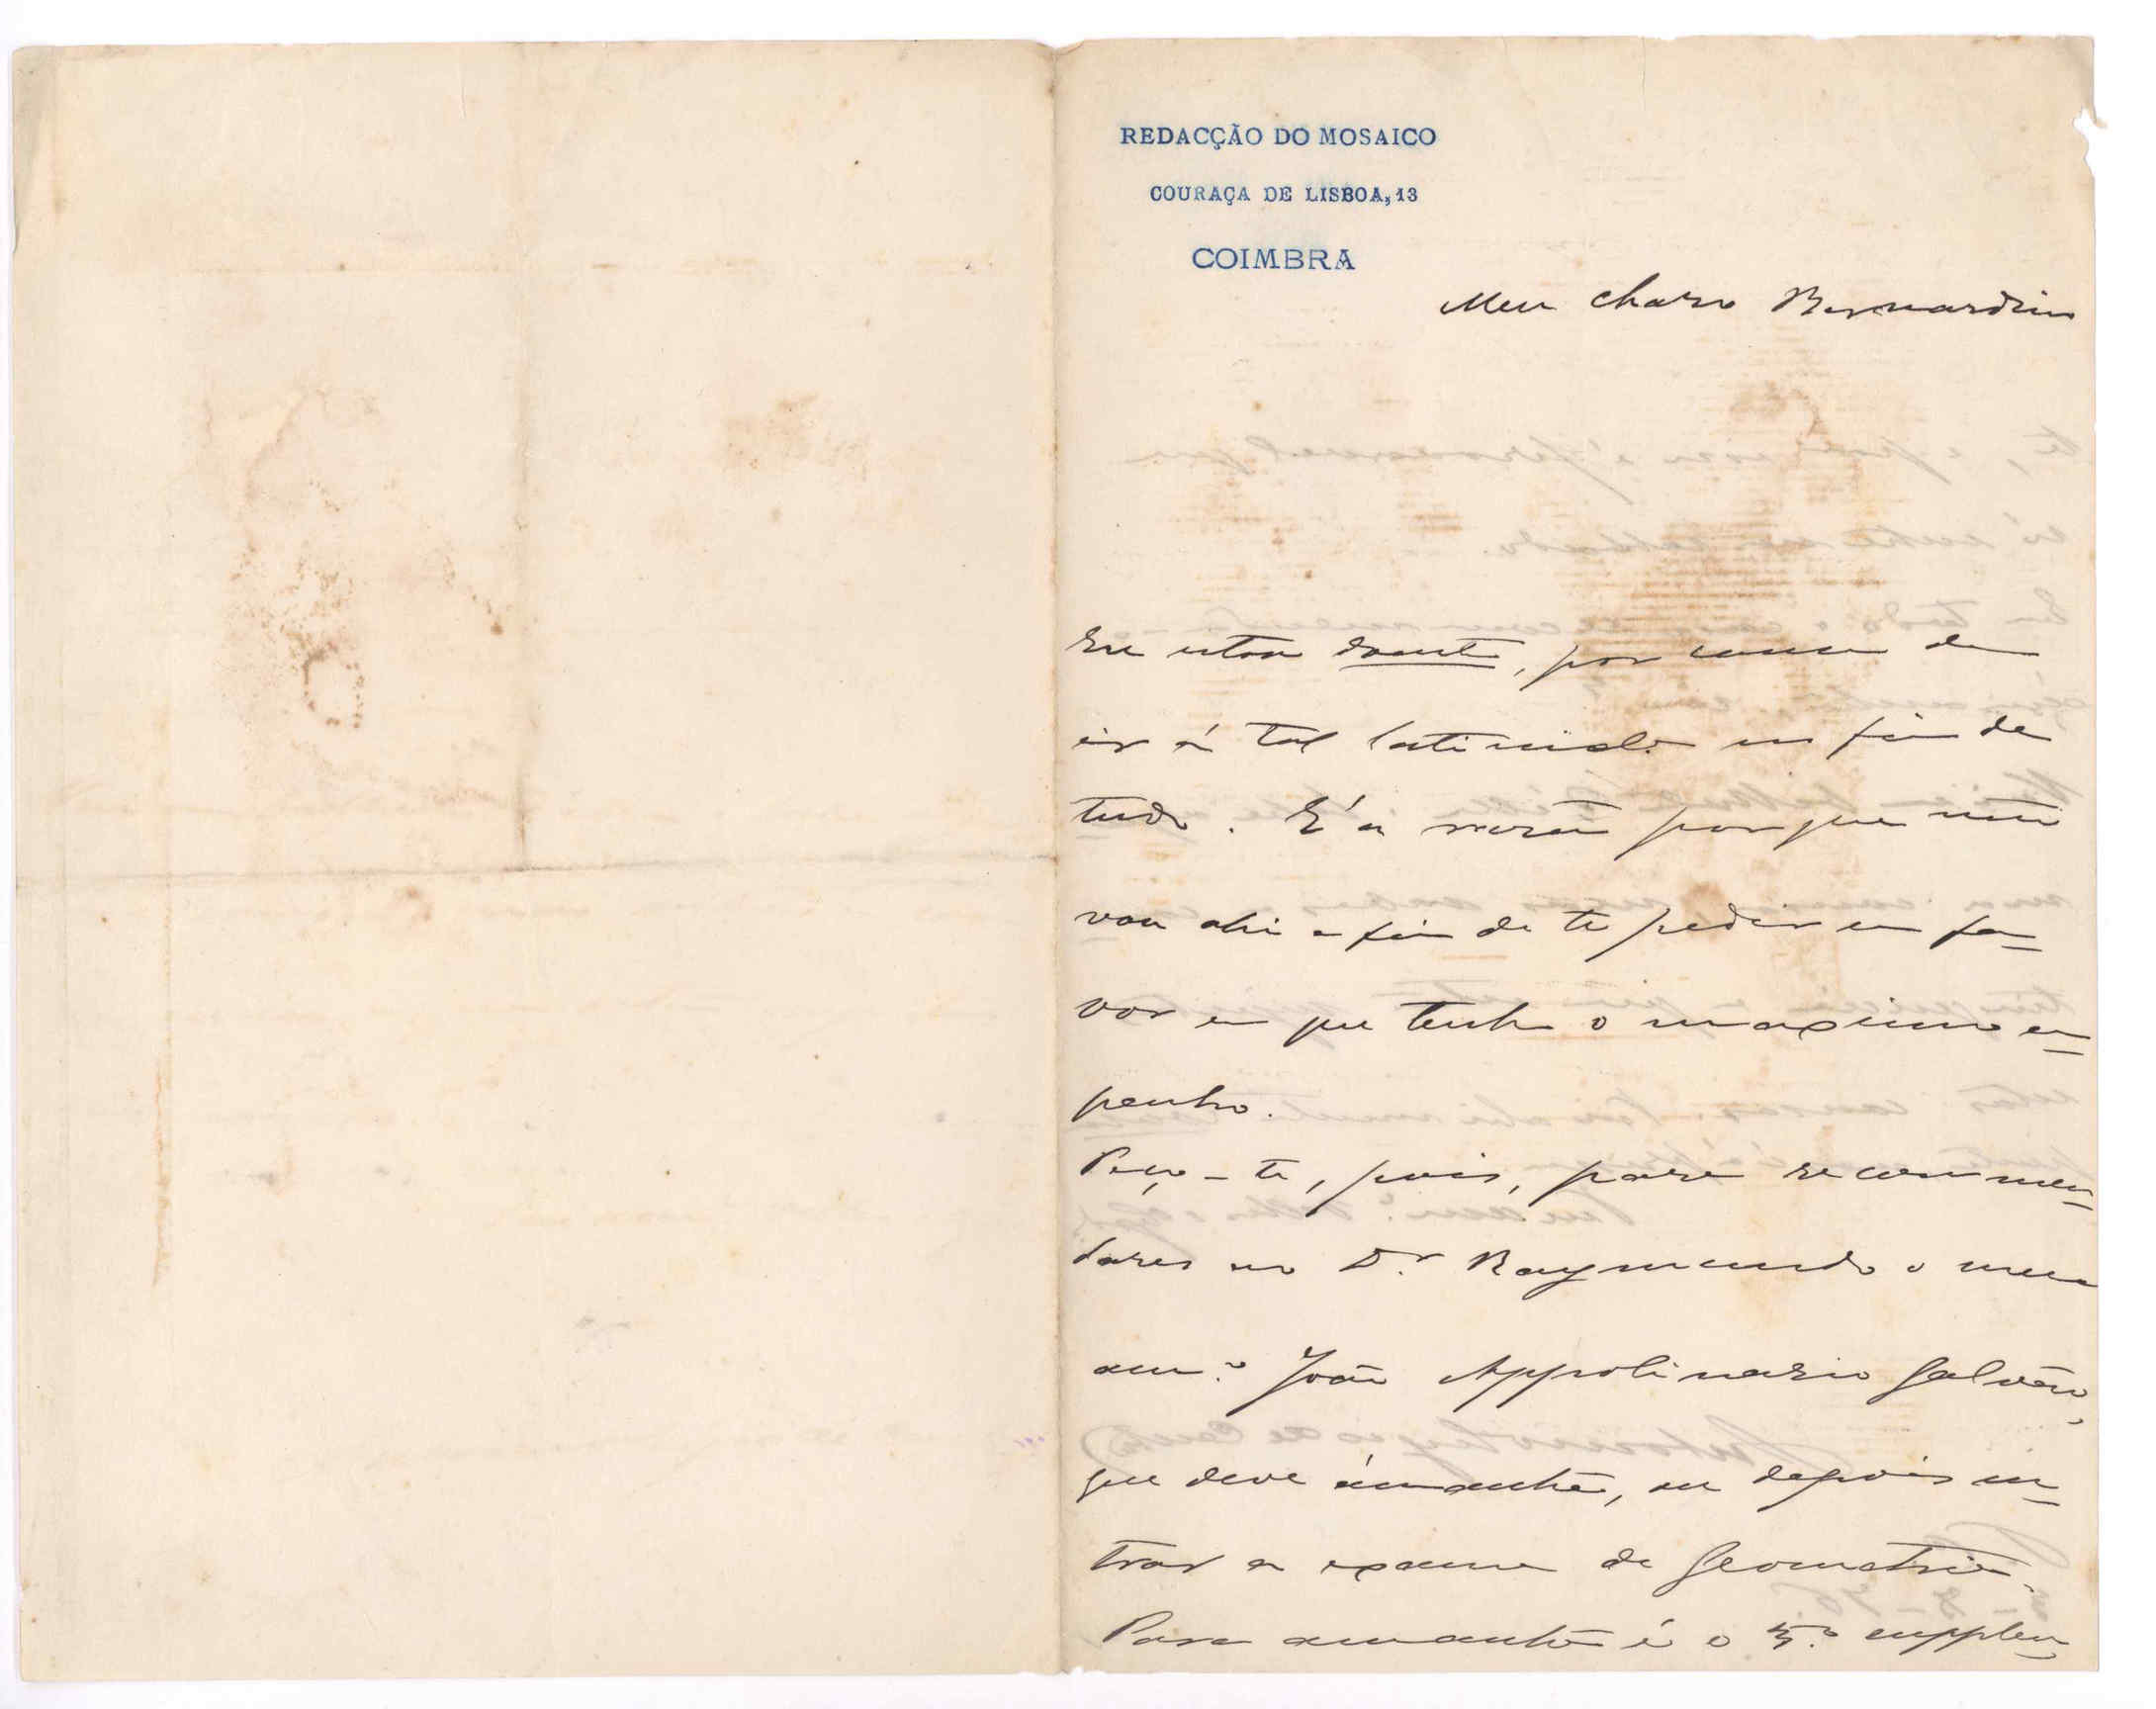 REDACÇÃO DO MOSAICO
COURAÇA DE LISBOA, 13
COIMBRA
Meu charo Bernardino
Eu estou doente, por causa de
ir á tal latinidade no fim de
tudo. É a rasão porque não
vou ahi a fim de te pedir um fa-
vor em que tenho o maximo em-
penho.
Peço-te, pois, para recommen-
dares ao Dr. Raymundo o meu
am.º João Appolinario Galvão,
que deve ámanhã, ou depois en-
trar a exame de Geometria.
Para amanhã é o 5.º supplen-